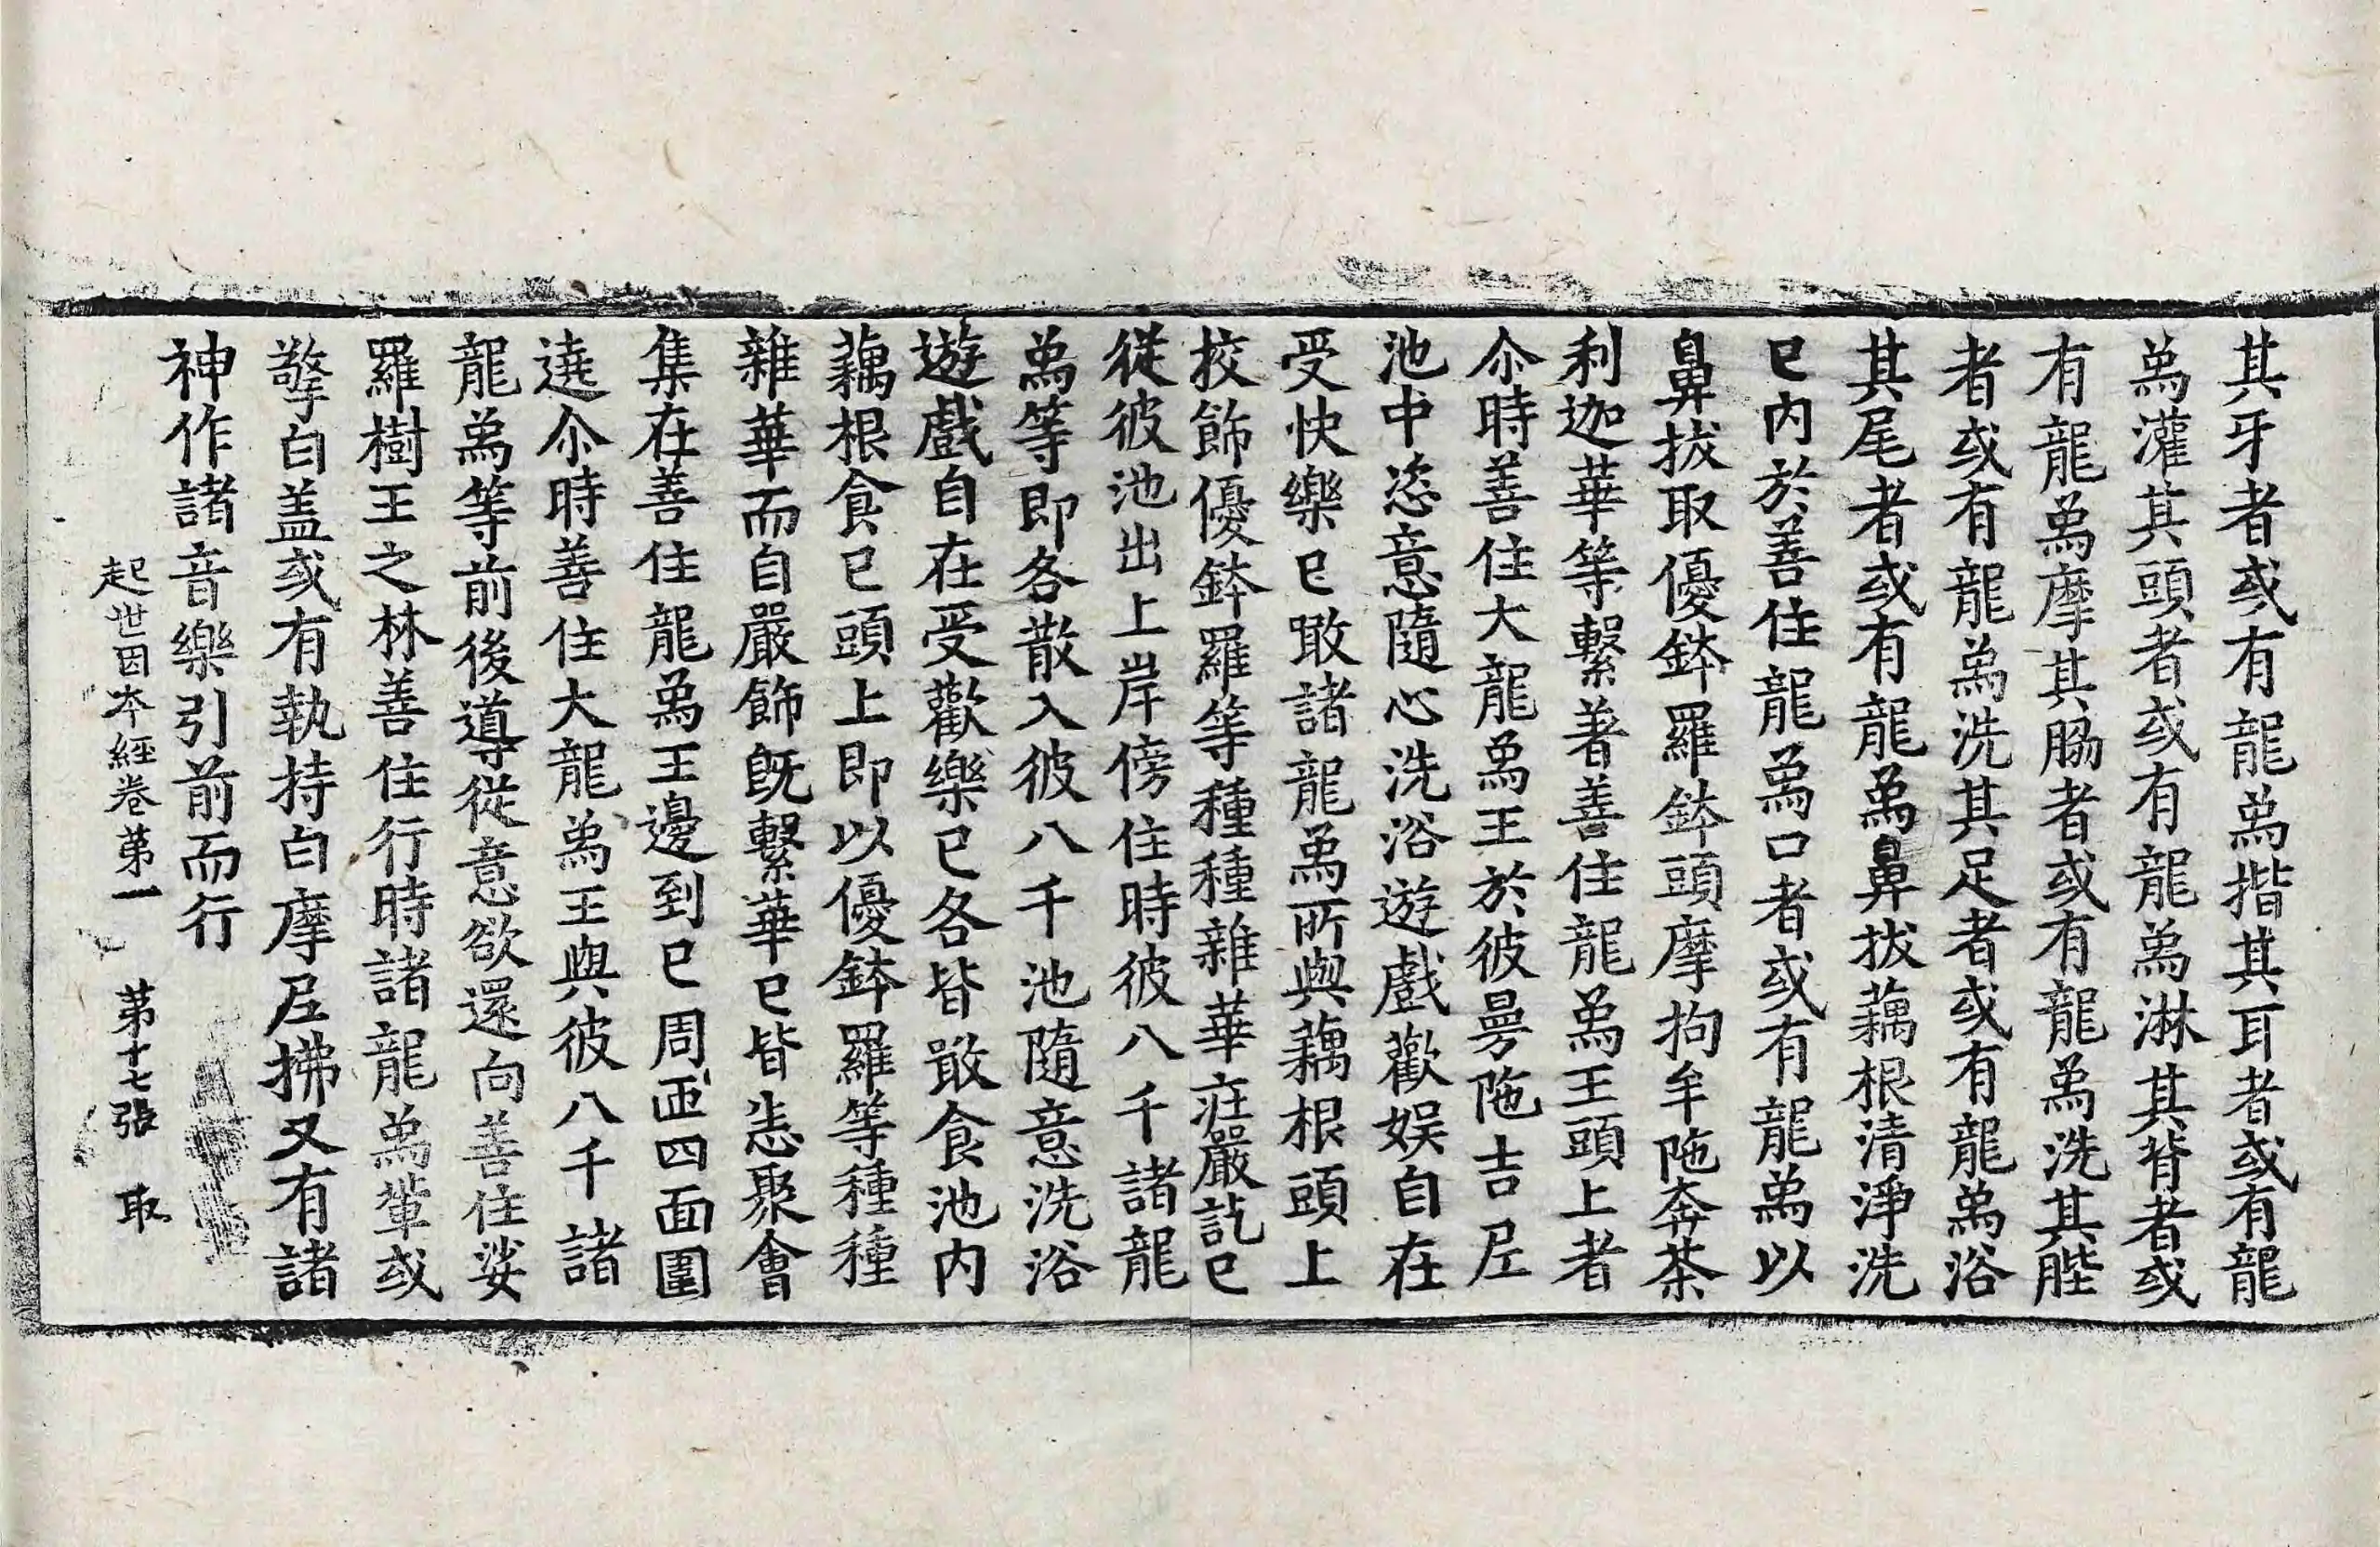 其牙者或有龍爲揩其耳者或有龍
爲灌其頭者或有龍爲淋其背者或
有龍爲摩其脇者或有龍爲洗其䏶
者或有龍爲洗其足者或有龍爲浴
其尾者或有龍爲鼻拔藕根清淨洗
已内於善住龍爲口者或有龍爲以
鼻拔取優鉢羅鉢頭摩拘牟陁奔茶
利迦華等繫著善住龍爲王頭上者
尒時善住大龍爲王於彼曼陁吉𡰱
池中恣意隨心洗浴遊戲歡娛自在
受快樂已噉諸龍爲所與藕根頭上
挍飾優鉢羅等種種雜華庄嚴訖已
從彼池出上岸傍住時彼八千諸龍
爲等即各散入彼八千池隨意洗浴
遊戲自在受歡樂已各皆噉食池内
藕根食已頭上即以優鉢羅等種種
雜華而自嚴飾旣繫華已皆悉聚會
集在善住龍爲王邊到已周帀四面圍
遶尒時善住大龍爲王與彼八千諸
龍爲等前後導從意欲還向善住娑
羅樹王之林善住行時諸龍爲輩或
擎白盖或有執持白摩𡰱拂又有諸
神作諸音樂引前而行
起世因本經卷第一 第十七張 取